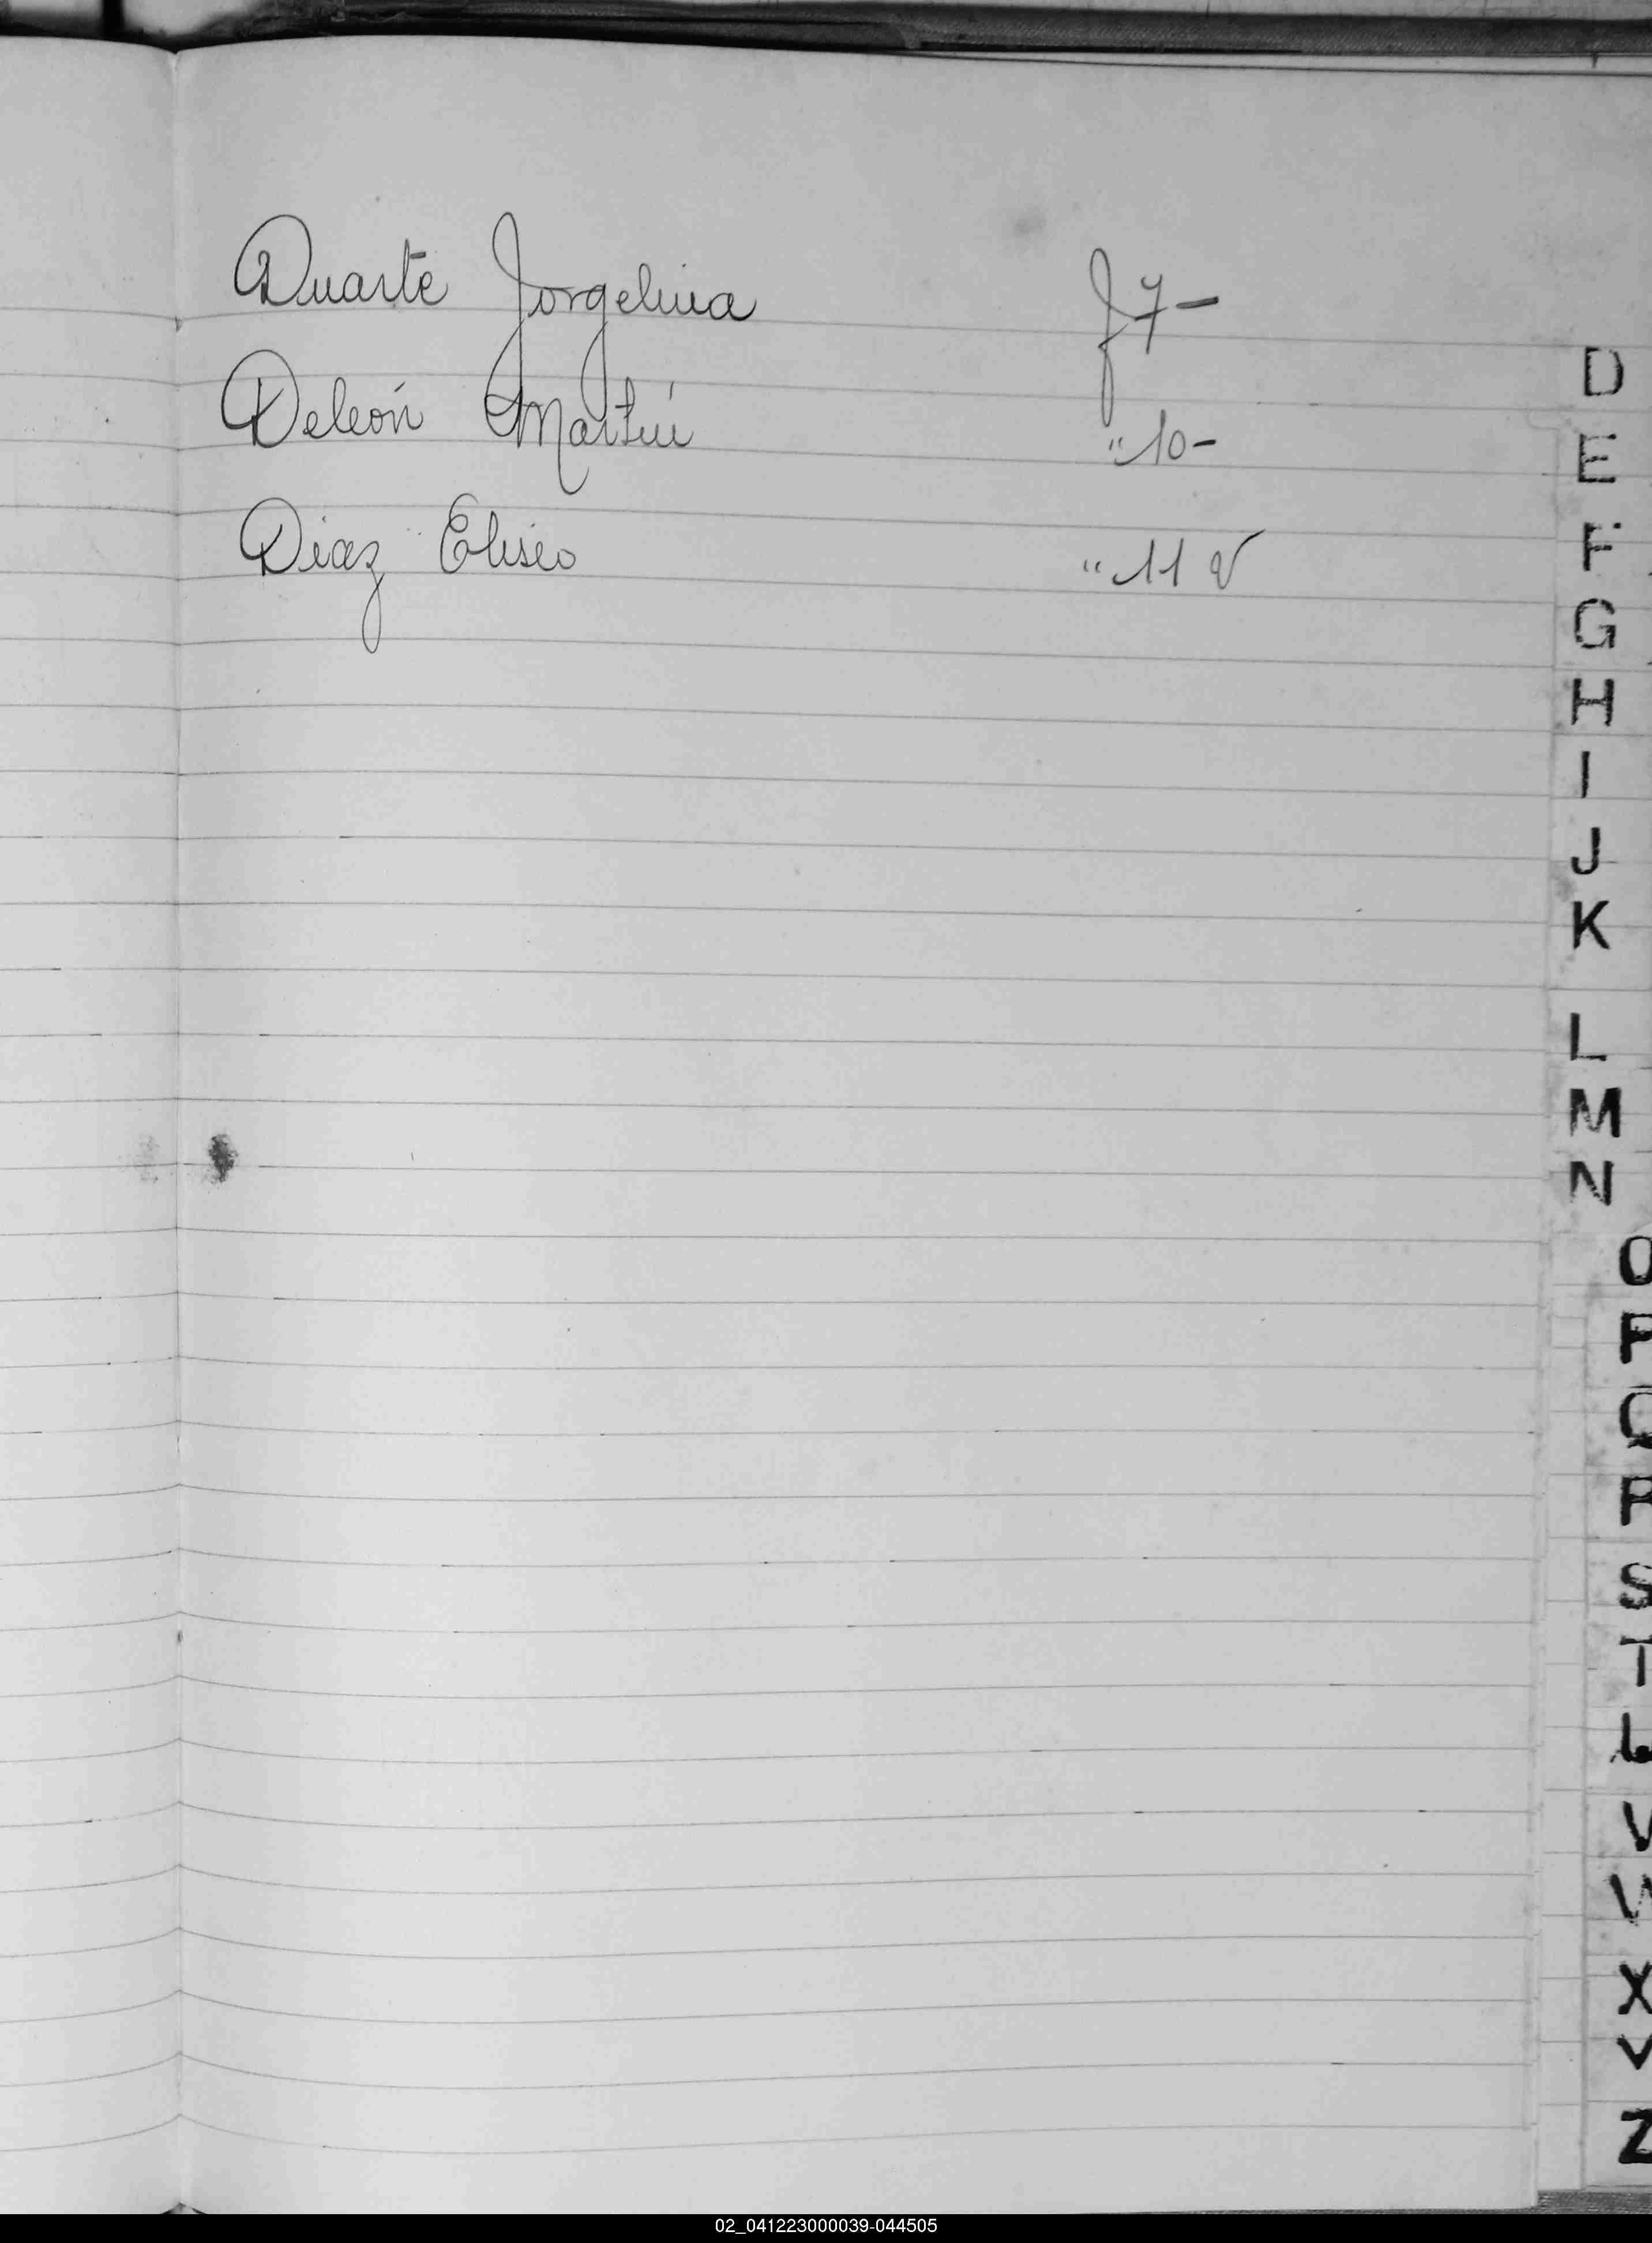 Duarte Jorgelina f 7-
Deleón Martín " 10-
Diaz Eliseo " 11 v
D
E
F
G
H
I
J
K
L
M
N
O
P
Q
R
S
T
U
V
W
X
Y
Z
02_041223000039-044505